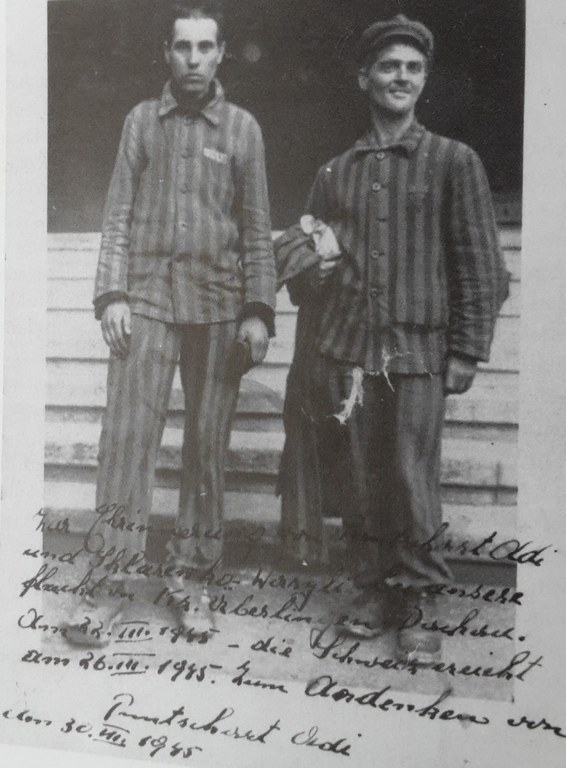 Zur Erinnerung von Puntschart Adi
und SkLarenko-Wassyli an unsere
flucht v. Kz. Überlingen Dachau.
Am 22.III.1945 - die Schweiz ereicht
am 26.III.1945. Zum Andenken von
Puntschart Adi
den 30.III.1945